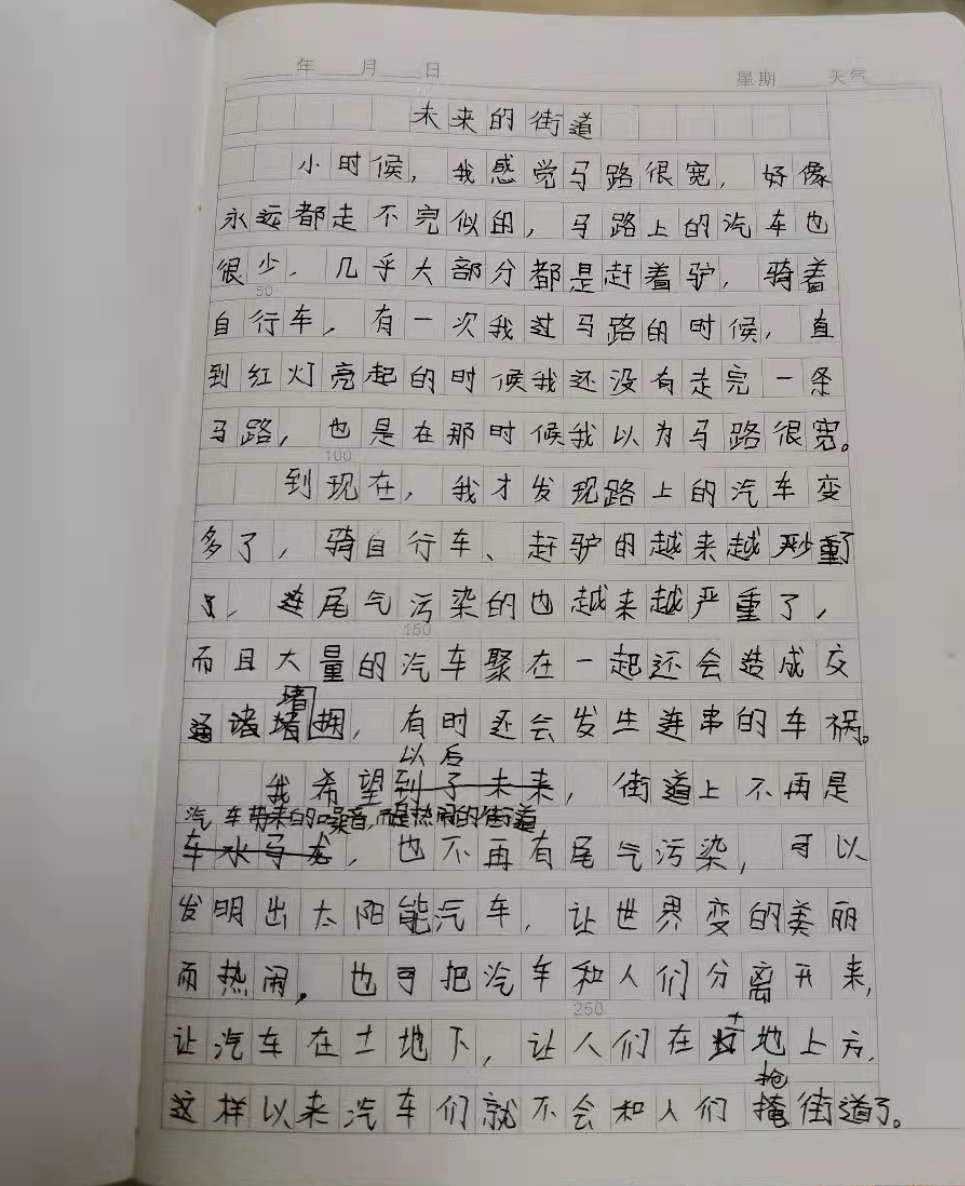 年 月 日 星期 天气
未来的街道
小时候，我感觉马路很宽，好像
永远都走不完似的，马路上的汽车也
很少，几乎大部分都是赶着驴，骑着
50
自行车，有一次我过马路的时候，直
到红灯亮起的时候我还没有走完一条
马路，也是在那时候我以为马路很宽。
100
到现在，我才发现路上的汽车变
多了，骑自行车、赶驴的越来越少了
，连尾气污染的也越来越严重了，
150
而且大量的汽车聚在一起还会造成交
通堵拥，有时还会发生连串的车祸。
我希望以后，街道上不再是
汽车带来的噪音，而是热闹的街道
，也不再有尾气污染，可以
发明出太阳能汽车，让世界变的美丽
而热闹，也可把汽车和人们分离开来，
250
让汽车在土地下，让人们在土地上方，
这样以来汽车们就不会和人们抢街道了。